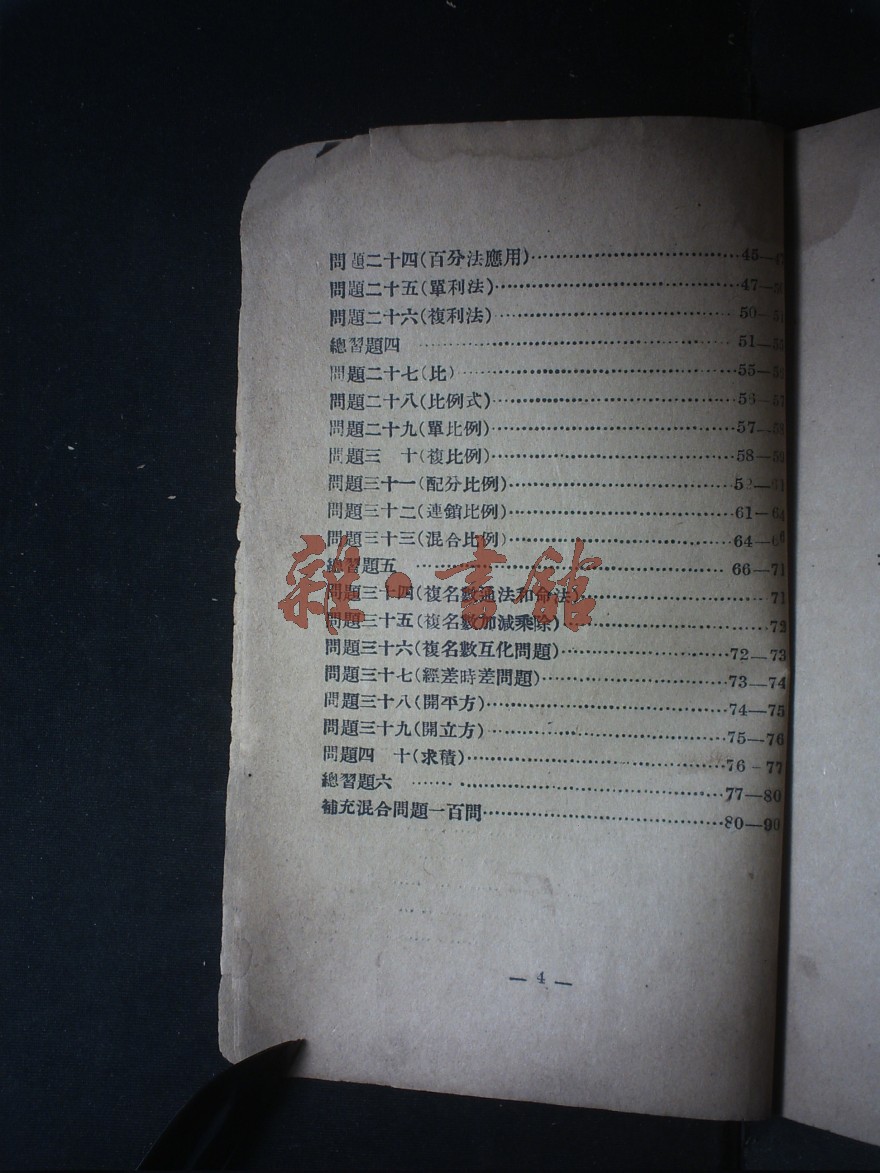 問題二十四(百分法應用)…………45—47
問題二十五(單利法)…………47—50
問題二十六(複利法)…………50—51
總習題四 …………51—55
問題二十七(比)…………55—
問題二十八(比例式)…………56—57
問題二十九(單比例)…………57—58
問題三 十(複比例)…………58—
問題三十一(配分比例)…………52—61
問題三十二(連鎖比例)…………61—64
問題三十三(混合比例)…………64—66
總習題五 …………66—71
問題三十四(複名數通法和命法)…………71
問題三十五(複名數加減乘除)…………72
問題三十六(複名數互化問題)…………72—73
問題三十七(經差時差問題)…………73—74
問題三十八(開平方)…………74—75
問題三十九(開立方)…………75—76
問題四 十(求積)…………76-77
總習題六 …………77—80
補充混合問題一百問…………80—90
— 4 —
雜·書館